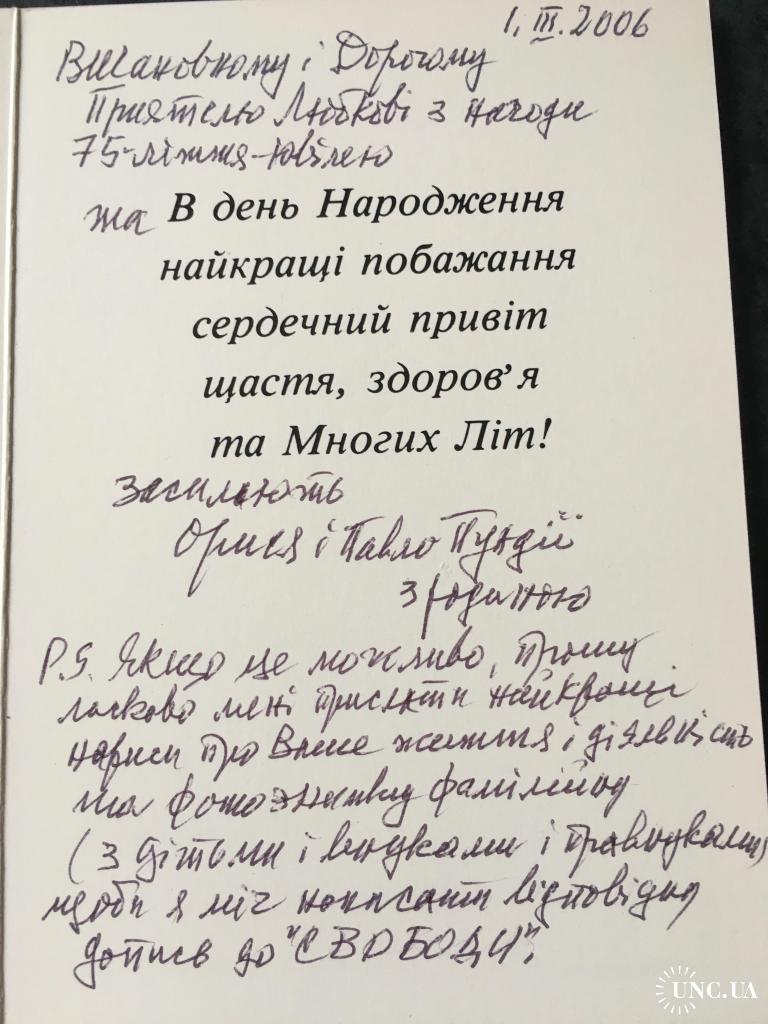 1. III. 2006
Вшановному і Дорогому
Приятелю Любкові з нагоди
75-ліття-ювілею
та В день Народження
найкращі побажання
сердечний привіт
щастя, здоров'я
та Многих Літ!
засилають
Орися і Павло Пундії
з родиною
P.S. Якщо це можливо, прошу
ласково мені прислати найкращі
нариси про Ваше життя і діяльність
та фото
(з дітьми і внуками і правнуками)
щоби я міг написати відповідну
допись до "СВОБОДИ".
UNC.UA